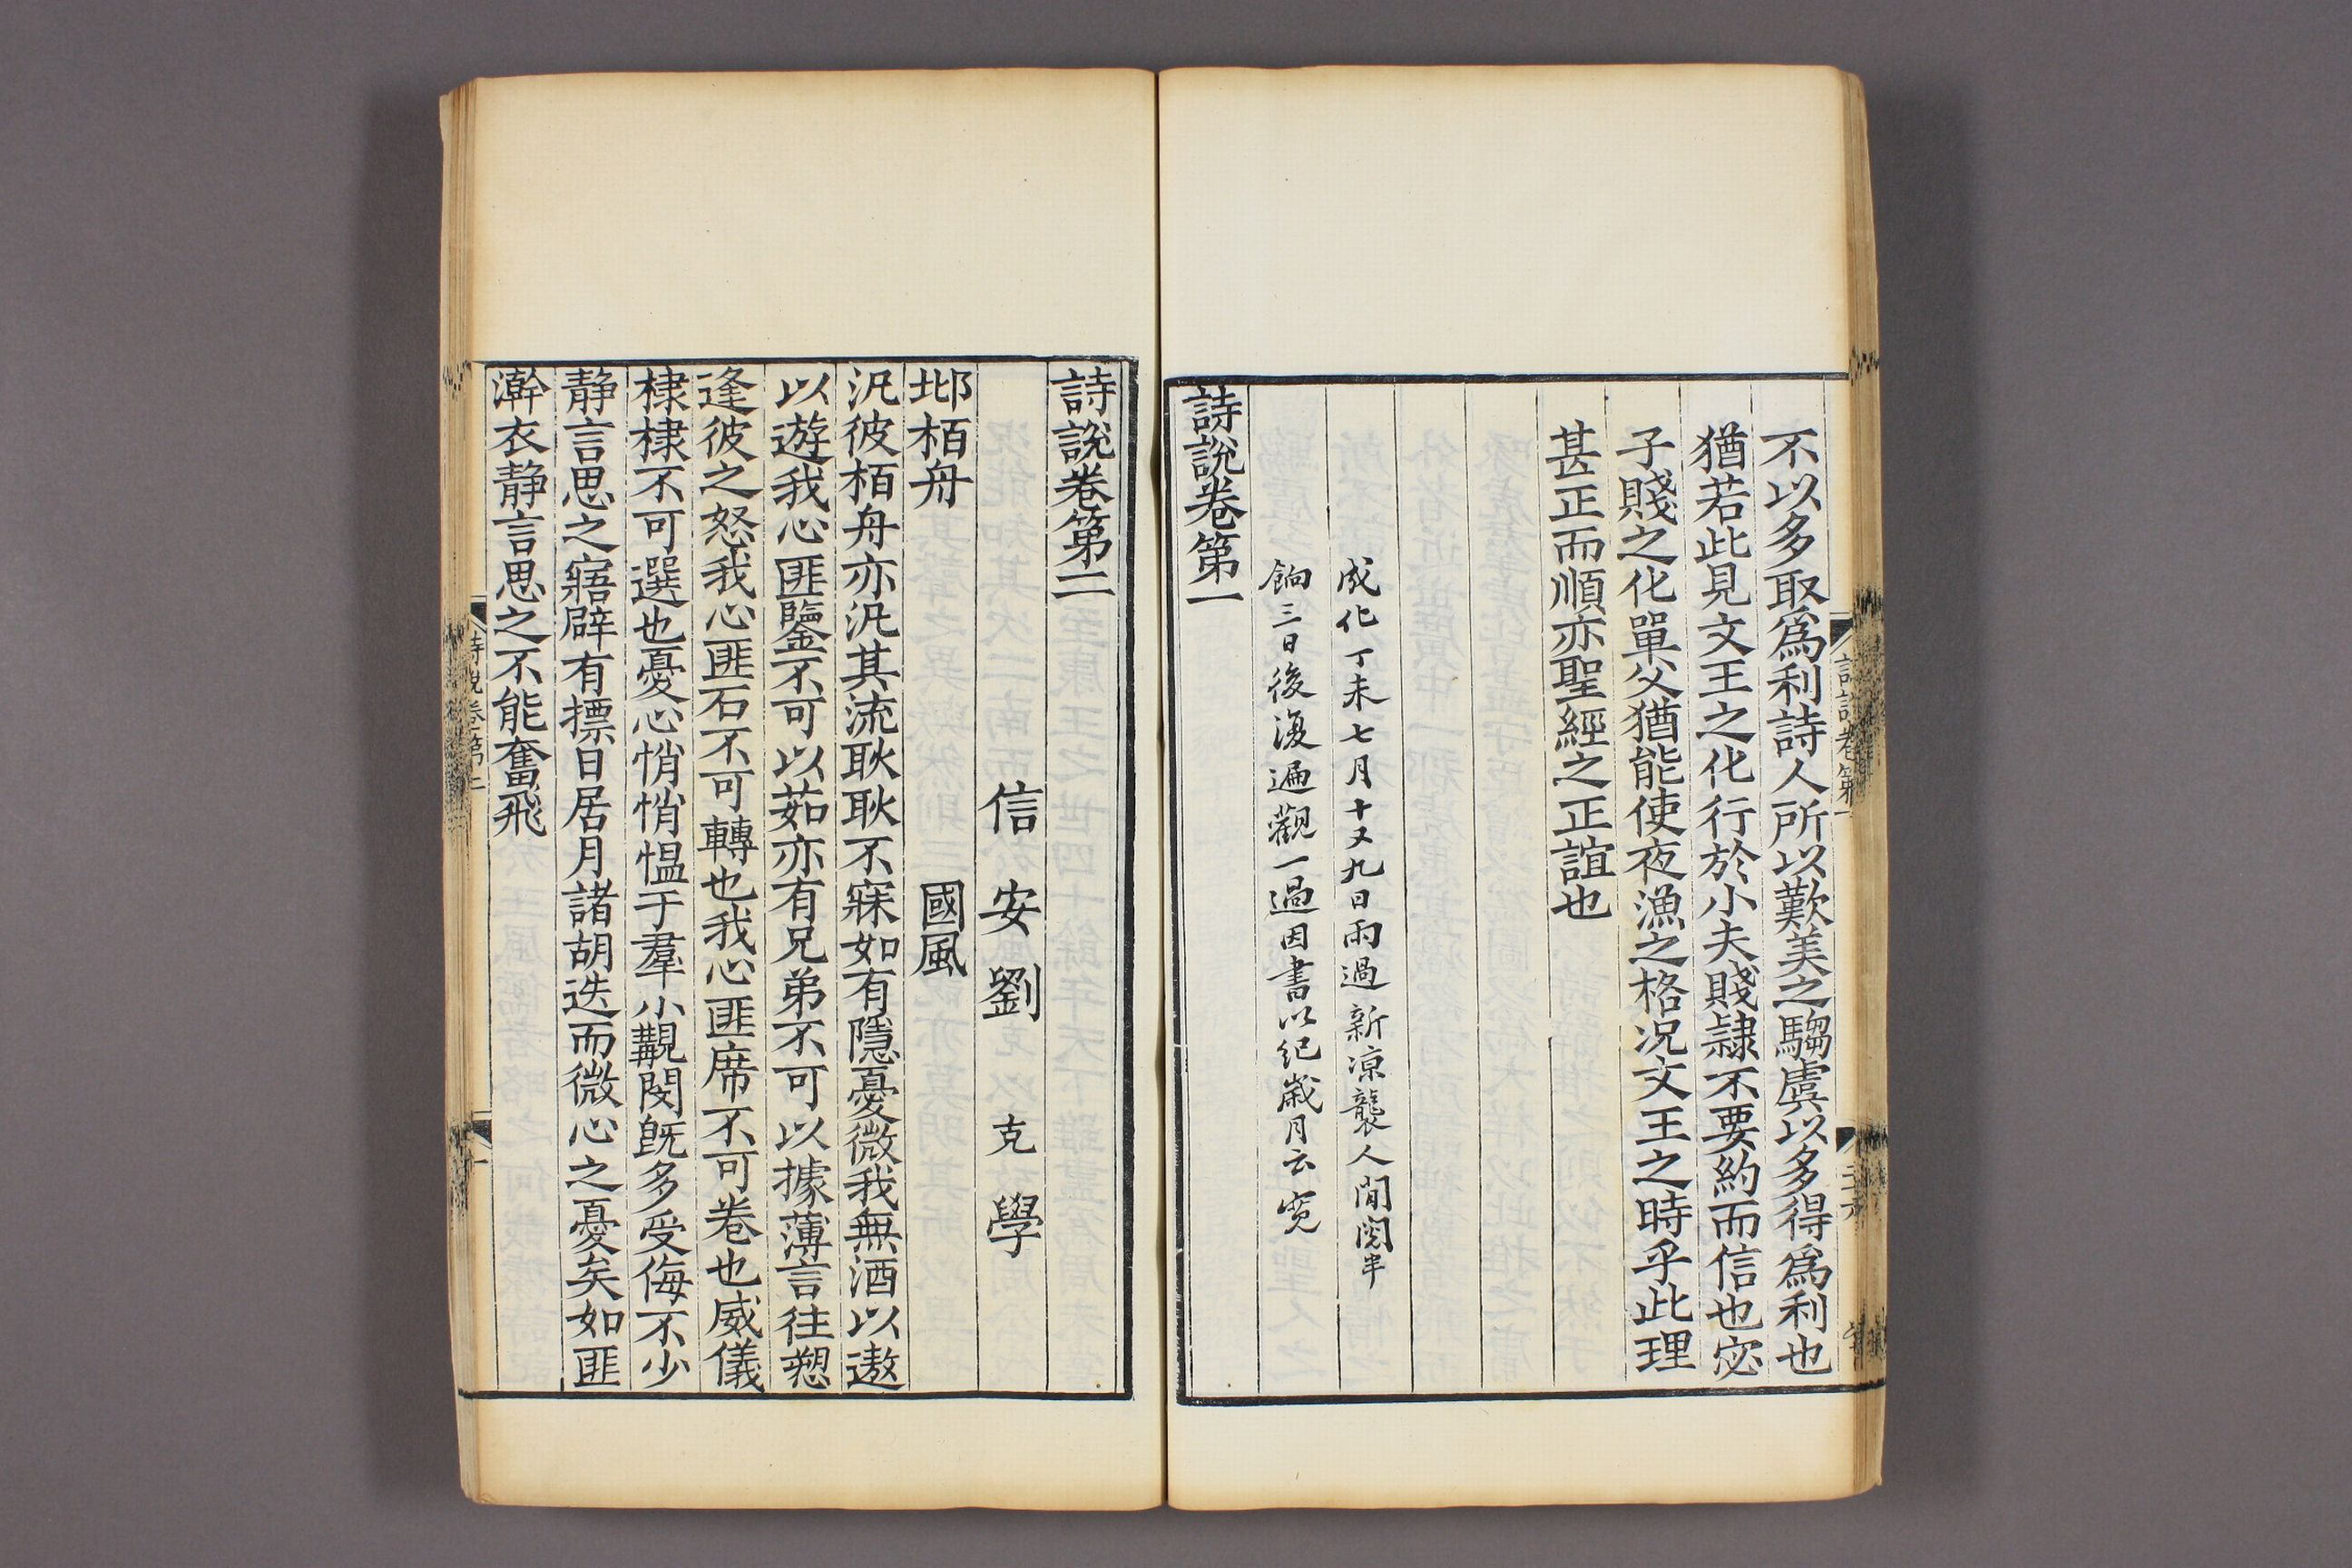 不以多取爲利詩人所以歎美之騶虞以多得爲利也
猶若此見文王之化行於小夫賤隷不要約而信也宓
子賤之化單父猶能使夜漁之格况文王之時乎此理
甚正而順亦聖經之正誼也
成化丁未七月十又九日雨過新凉襲人閒閱半
餉三日後復遍觀一過因書以紀歲月云寬
詩說卷第一
詩說卷第二
信安劉克學
邶栢舟 國風
汎彼栢舟亦汎其流耿耿不寐如有隱憂微我無酒以遨
以遊我心匪鑒不可以茹亦有兄弟不可以據薄言往愬
逢彼之怒我心匪石不可轉也我心匪席不可卷也威儀
棣棣不可選也憂心悄悄愠于羣小覯閔旣多受侮不少
静言思之寤辟有摽日居月諸胡迭而微心之憂矣如匪
澣衣静言思之不能奮飛
詩說卷第一
詩說卷第二